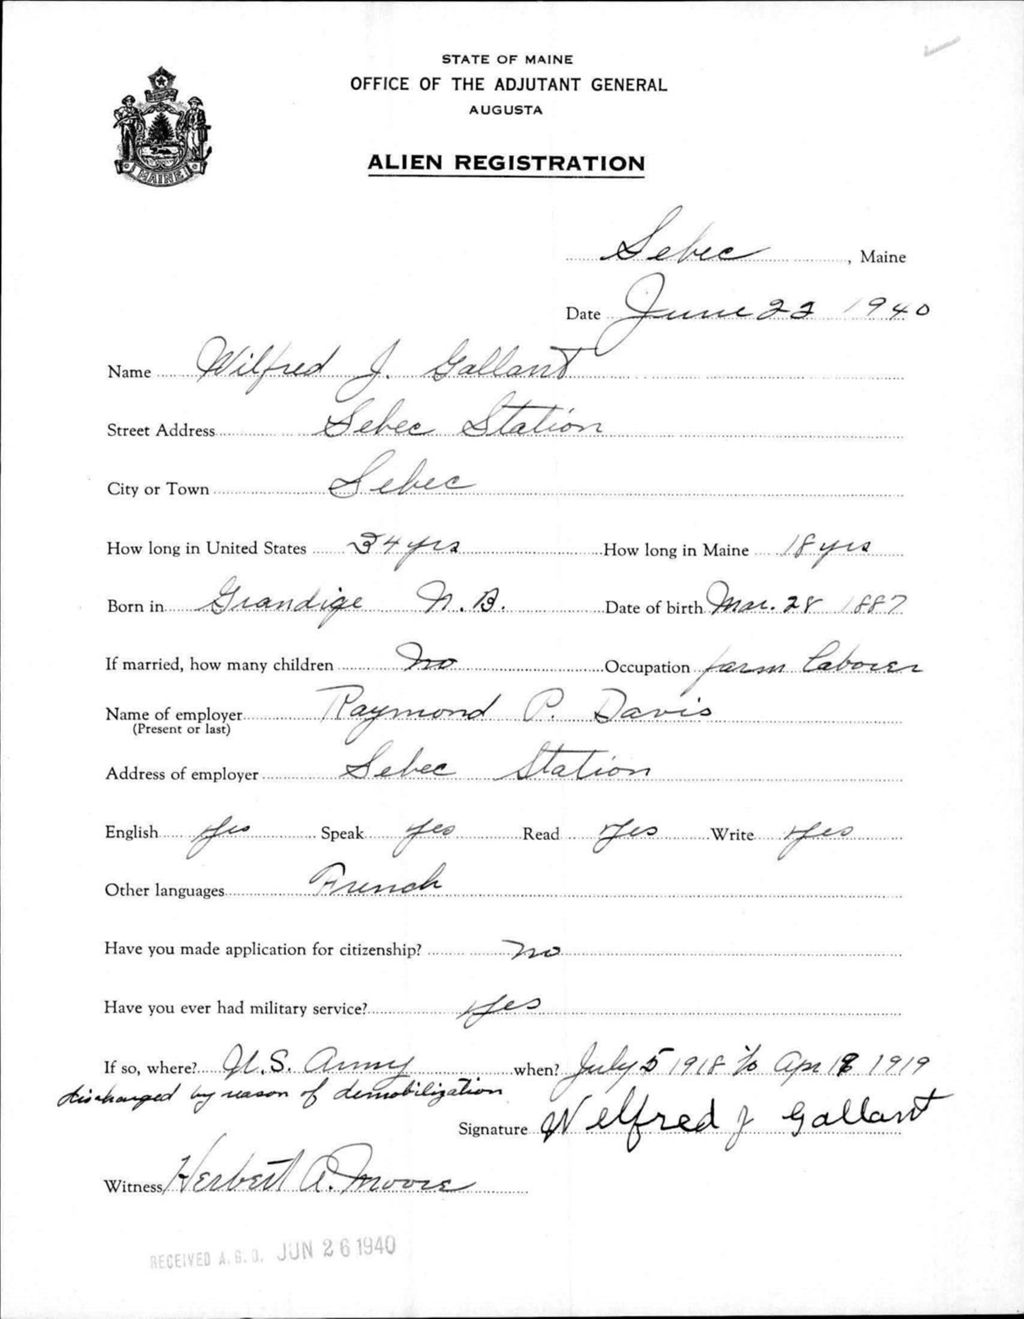 STATE OF MAINE
OFFICE OF THE ADJUTANT GENERAL
AUGUSTA
ALIEN REGISTRATION
MAINE
Sebec, Maine
Date June 22 1940
Name Wilfred J. Gallant
Street Address Sebec Station
City or Town Sebec
How long in United States 34 yrs How long in Maine 18 yrs
Born in Grandige N.B. Date of birth Mar. 28 1887
If married, how many children No Occupation farm laborer
Name of employer Raymond P. Davis
(Present or last)
Address of employer Sebec Station
English Yes Speak yes Read Yes Write Yes
Other languages French
Have you made application for citizenship? No
Have you ever had military service? Yes
If so, where? U.S. Army when? July 5 1918 to Apr 18 1919
discharged by reason of demobilization
Signature Wilfred J Gallant
Witness Herbert A. Moore
RECEIVED A. G. O. JUN 26 1940